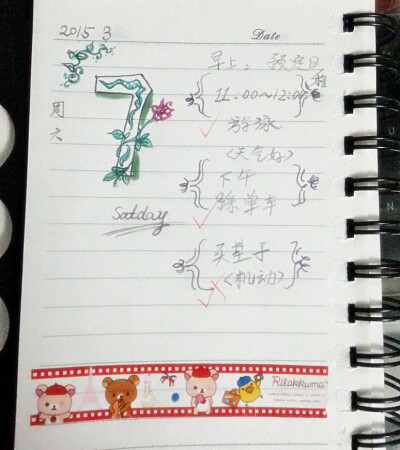 2015 3
Date
早上: 预定日程
周六
7
11.00~12:00
游泳
<天气好>
下午
骑单车
Satday
买垫子
<机动>
Rilakkuma